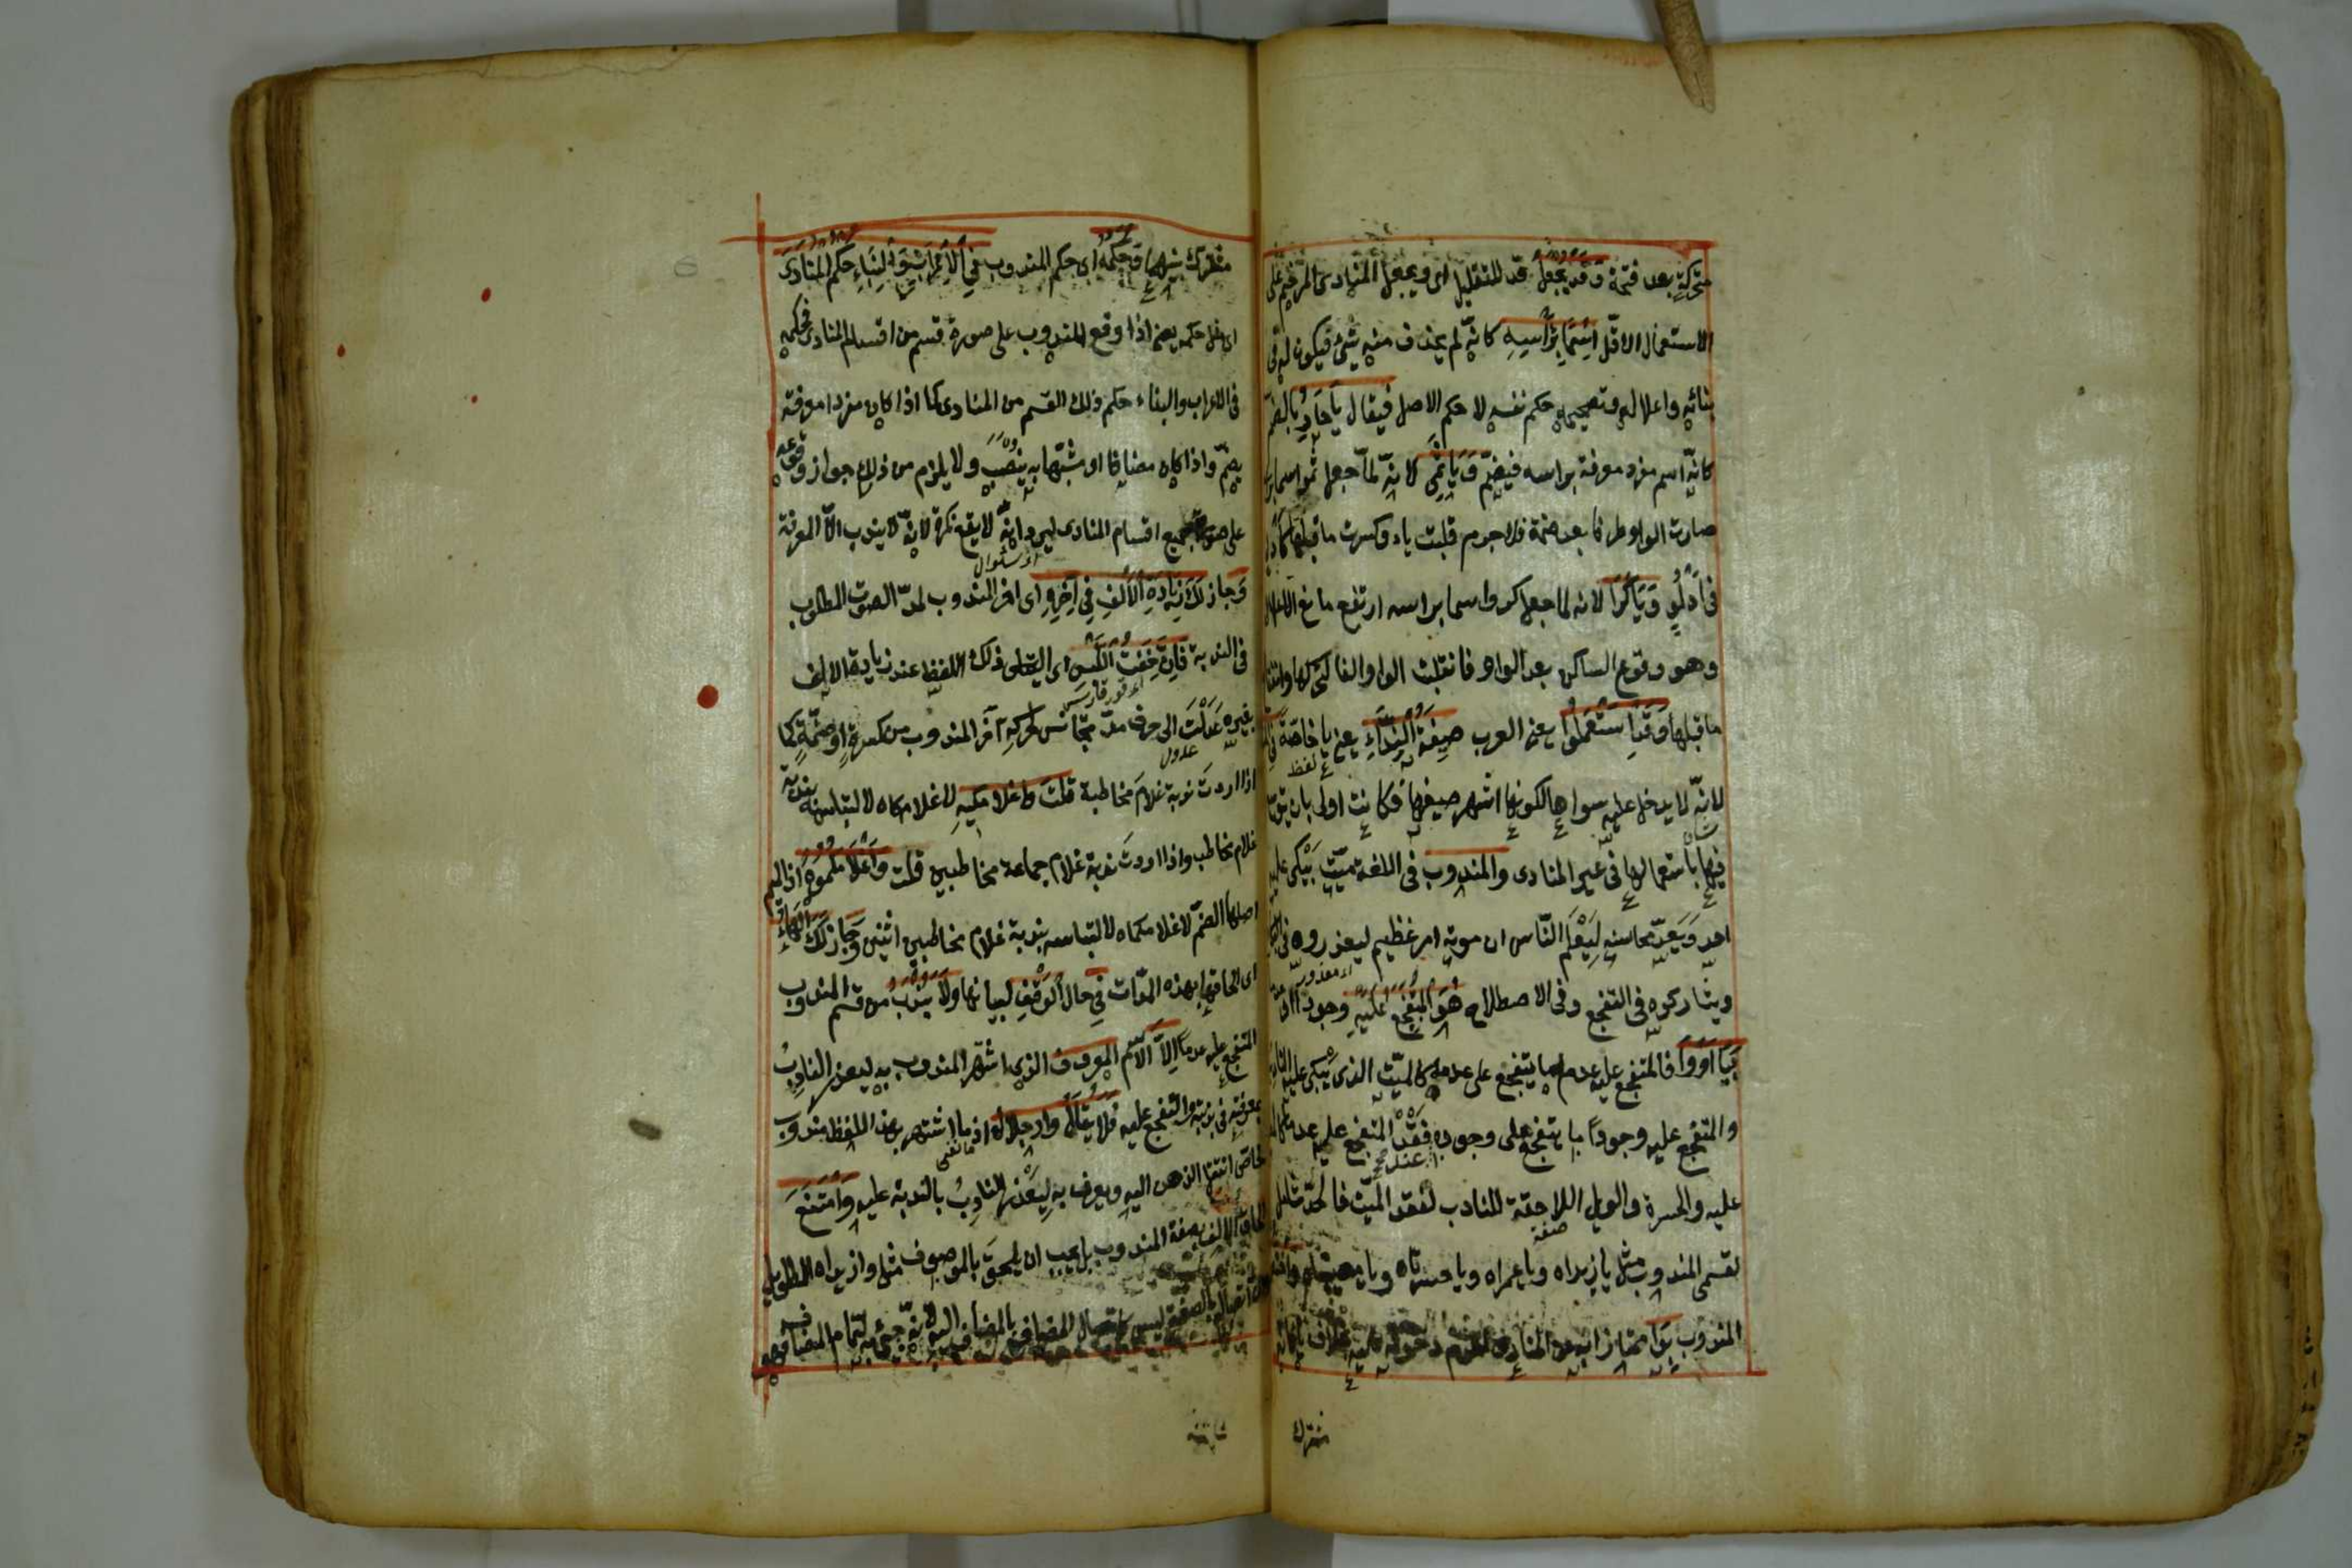 متحركة بعد فتحة وَقَدْ يُجْعَلُ قد للتقليل اى ويجعل المنادى المرخم على
الاستعمال الاقلّ اِسْمًا بِرَأْسِهِ كانّه لم يحذف منه شئ فيكون له فى
بنائه واعلاله وتصحيحه حكم نفسه لا حكم الاصل فيقال يَا حَارُ بالضم
كانّه اسم مفرد معرفة براسه فيضمّ وَيَا ثَمِى لانّه لمّا جعل ثمو اسما بر
صارت الواو طرفا بعد ضمة فلا جرم قلبت ياء وكسرت ما قبلها كما
فى اَدْلُوٍ وَيَا كَرَا لانه لما جعل كرو اسما براسه ارتفع مانع الاعلال
وهو وقوع الساكن بعد الواو فانقلبت الواو الفا لتحركها وانفتا
ما قبلها وَقَدِ اسْتَعْمَلُوا يعنى العرب صِيغَةَ النِّدَاءِ يعنى يا خاصّة فى
لفظ
لانّه لا يدخل عليه سواها لكونها اشهر صيغها فكانت اولى بان يتو
فيها باستعمالها فى غير المنادى والمندوب فى اللغة ميّت يَبْكى عليه
احد وَيَعدّ محاسنه لِيَعْلَم النّاس ان موته امر عظيم ليعذروه فى
ويشاركوه فى التفجع وفى الاصطلاح هُوَ المُتَفَجَّعُ عَلَيْهِ وجودا او
بِيَا اَوْ وَا فالمتفجع عليه عدما ما يتفجع على عدمه كالميّت الذى يبكى عليه
والمتفجع عليه وجودًا ما يتفجع على وجوده عند فقد المتفجع عليه عدما
عليه والحسرة والويل اللاحقة للنادب لفقد الميّت فالحدّ شامل
لقسمى المندوب مثل يا زيداه ويا عمراه ويا حسرتاه ويا مصيبتاه
المندوب بِوَا ممتازا به عن المنادى لعدم دخوله عليه بخلاف يا فانّه
مشترك
مشترك بينهما وَحُكْمُهُ اى حكم المندوب فِى الْاِعْرَابِ وَالْبِنَاءِ حُكْمُ المُنَادَى
اى مثل حكمه يعنى اذا وقع المندوب على صورة قسم من اقسام المنادى فحكمه
فى الاعراب والبناء حكم ذلك القسم من المنادى كما اذا كان مفردا معرفة
يضمّ واذا كان مضافا او مشبّها به ينصب ولا يلزم من ذلك جواز وقوعه
على صورة جميع اقسام المنادى ليرد انّه لا يقع نكرة لانّه لا يندب الّا المعرفة
وَجاز لَكَ زِيَادَةُ الْاَلِفِ فِى آخِرِهِ اى آخر المندوب لمدّ الصوت المطلوب
فى الندبة فَاِنْ خِفْتَ اللَّبْسَ اى التباس ذلك اللفظ عند زيادة الالف
بغيره عَدَلْتَ الى حرف مدّ مجانس لحركة آخر المندوب من كسرة او ضمّة كما
عدول
اذا اردت ندبة غلام مخاطبة قلت وَاغلامَكِيهِ لا غلامكاه لالتباسه بندبة
غلام مخاطب واذا اردت ندبة غلام جماعة مخاطبين قلت وَاغُلَامَكُمُوه اذ الميم
اصلها الضمّ لا غلامكماه لالتباسه بندبة غلام مخاطبين اثنين وَجَازَ لَكَ الْهَاءُ
اى الحاقها بهذه المدّات فِى حال الْوَقْفِ لبيانها وَلَا يُنْدَبُ من قسم المندوب
المتفجع عليه عدما اِلَّا الْاسْمُ المعروف الذى اشتهر المندوب به ليعذر النادبُ
بمعرفته فى ندبته والتفجع عليه فَلَا يُقَالُ وارجلاه اذ ما اشتهر بهذا اللفظ مندوب
خاص انتقل الذهن اليه ويعرف به ليعذر النادبُ بالندبة عليه وَامْتَنَعَ
الحاق الالف بصفة المندوب بل يجب ان يلحق بالموصوف مثل وازيداه الطويل
اتصال بالصفة ليس كاتصال المضاف بالمضاف اليه لانّه جئ به لتمام المضاف